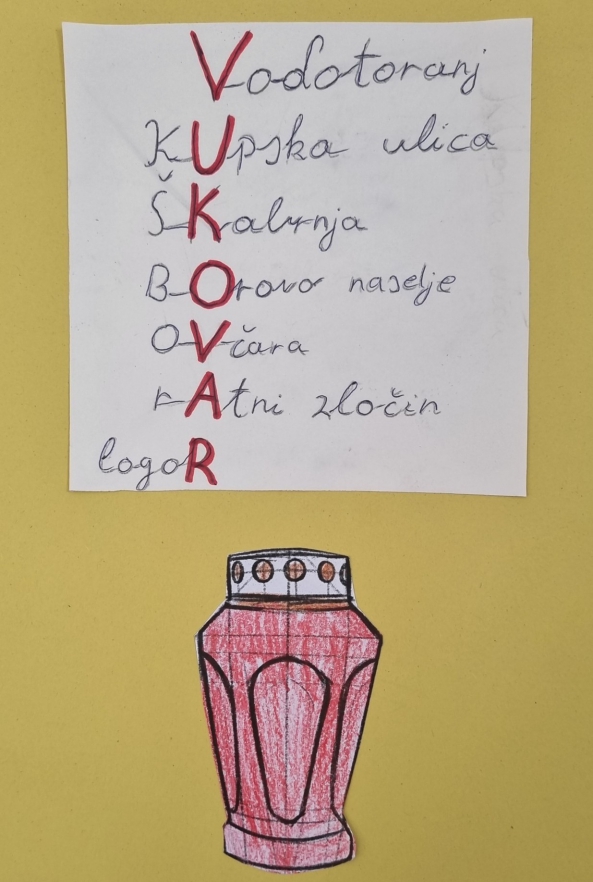 Vodotoranj
KUpska ulica
ŠKabrnja
BOrovo naselje
OVčara
rAtni zločin
logoR